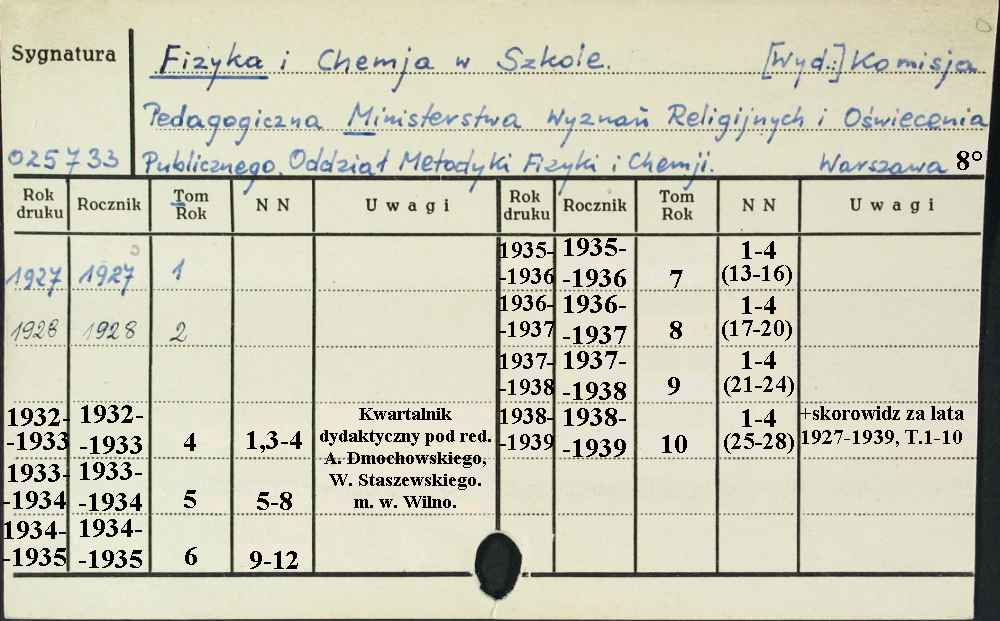 Sygnatura
Fizyka i Chemja w Szkole. [Wyd.:] Komisja
Pedagogiczna Ministerstwa Wyznań Religijnych i Oświecenia
025733 Publicznego. Oddział Metodyki Fizyki i Chemji. Warszawa 8°
Rok druku Rocznik Tom Rok N N Uwagi Rok druku Rocznik Tom Rok N N Uwagi
1927 1927 1
1928 1928 2
1932- 1932-
-1933 -1933 4 1,3-4
Kwartalnik
dydaktyczny pod red.
A. Dmochowskiego,
W. Staszewskiego.
m. w. Wilno.
1933- 1933-
-1934 -1934 5 5-8
1934- 1934-
-1935 -1935 6 9-12
1935- 1935- 1-4
-1936 -1936 7 (13-16)
1936- 1936- 1-4
-1937 -1937 8 (17-20)
1937- 1937- 1-4
-1938 -1938 9 (21-24)
1938- 1938- 1-4 +skorowidz za lata
-1939 -1939 10 (25-28) 1927-1939, T.1-10